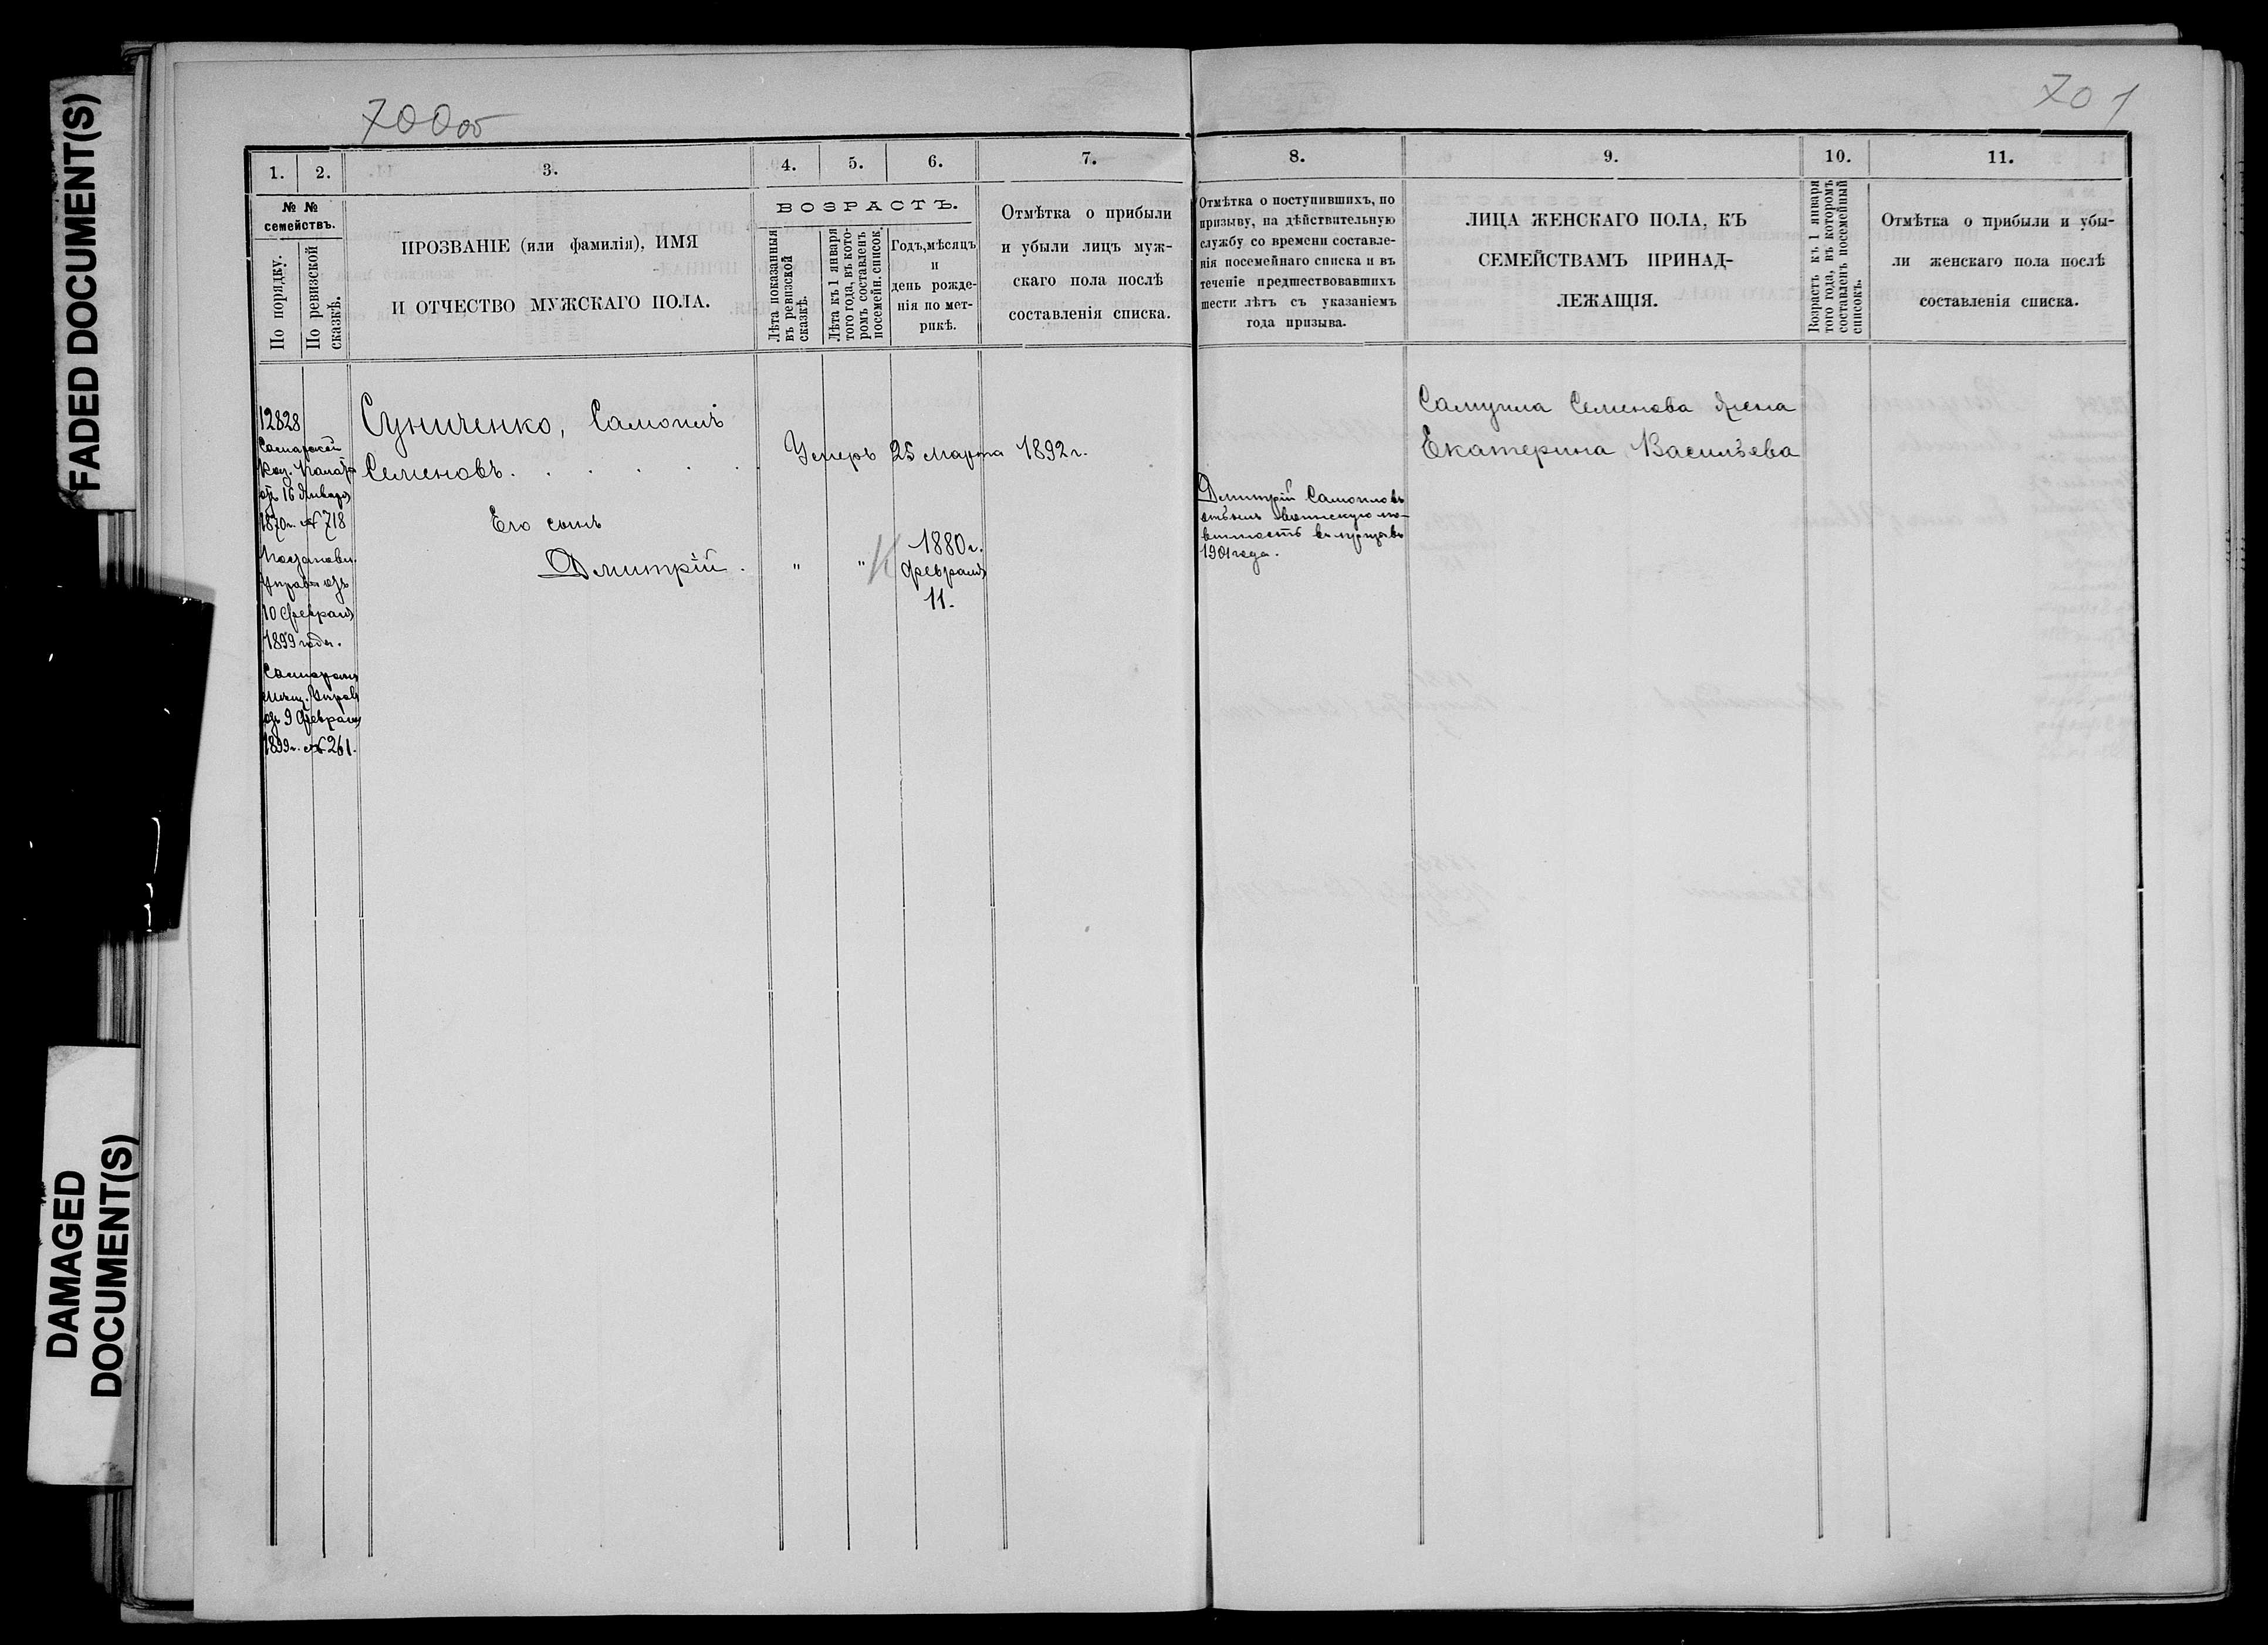 FADED DOCUMENT(S)
DAMAGED
DOCUMENT(S)
700об
1.
2.
3.
4.
5.
6.
7.
№ №
семействъ.
По порядку.
По ревизской
сказкѣ.
ПРОЗВАНІЕ (или фамилія), ИМЯ
И ОТЧЕСТВО МУЖСКАГО ПОЛА.
ВОЗРАСТЪ.
Лѣта показанныя
въ ревизской
сказкѣ.
Лѣта къ 1 января
того года, въ кото-
ромъ составленъ
посемейн. список.
Годъ, мѣсяцъ
и
день рожде-
нія по мет-
рикѣ.
Отмѣтка о прибыли
и убыли лицъ муж-
скаго пола послѣ
составленія списка.
12828
Самарской
Каз. Палаты
отъ 16 Января
1870г. № 718
Постановл.
Управы отъ
10 Февраля
1899 года.
мѣщ. Управы
отъ 9 Февраля
1899г. № 261.
Суниченко, Самоилъ
Семеновъ . . . . . .
Умеръ 25 Марта 1892г.
Его сынъ
Дмитрій .
"
"
1880г.
Февраля
11.
701
8.
9.
10.
11.
Отмѣтка о поступившихъ, по
призыву, на дѣйствительную
службу со времени составле-
нія посемейнаго списка и въ
теченіе предшествовавшихъ
шести лѣтъ съ указаніемъ
года призыва.
ЛИЦА ЖЕНСКАГО ПОЛА, КЪ
СЕМЕЙСТВАМЪ ПРИНАД-
ЛЕЖАЩІЯ.
Возрастъ къ 1 января
того года, въ которомъ
составленъ посемейный
списокъ.
Отмѣтка о прибыли и убы-
ли женскаго пола послѣ
составленія списка.
Дмитрій Самоиловъ
отбылъ воинскую по-
винность въ призывъ
1901 года.
Самуила Семенова жена
Екатерина Васильева